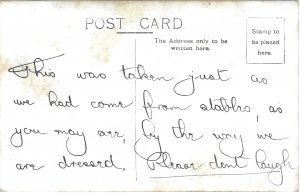 POST CARD
The Address only to be
written here.
Stamp to
be placed
here.
This was taken just as
we had come from stables, as
you may see, by the way we
are dressed. Please don't laugh